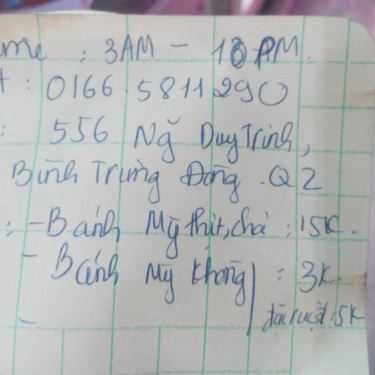 me : 3AM - 10PM.
: 0166.5811290
: 556 Ng̃ Duy Trinh,
Bình Trưng Đông . Q2
: - Bánh Mỳ thịt, chả : 15K.
- Bánh Mỳ không : 3K
- đặc ruột 5K